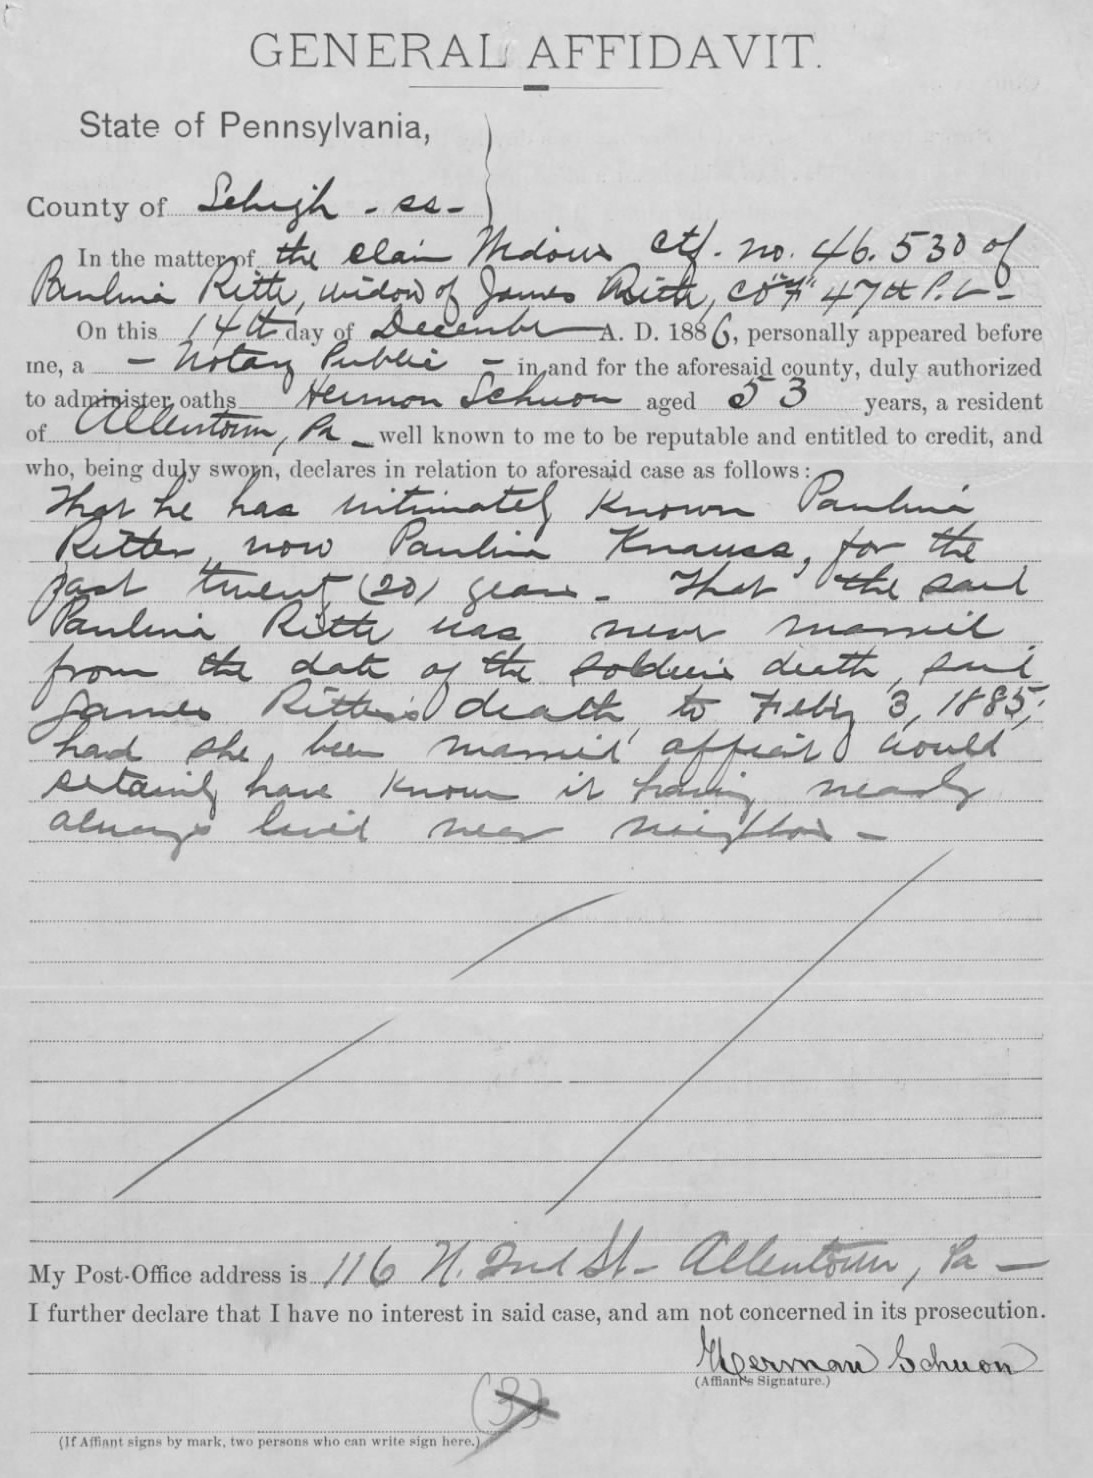 GENERAL AFFIDAVIT.
State of Pennsylvania,
County of Lehigh - ss -
In the matter of the claim Widows Ctf. no. 46.530 of
Paulina Ritter, widow of James Ritter, Co "F" 47th P.V. -
On this 14th day of December A. D. 1886, personally appeared before
me, a - Notary Public - in and for the aforesaid county, duly authorized
to administer oaths Hermon Schuon aged 53 years, a resident
of Allentown, Pa - well known to me to be reputable and entitled to credit, and
who, being duly sworn, declares in relation to aforesaid case as follows:
That he has intimately known Paulina
Ritter, now Paulina Knauss, for the
past twenty (20) years - That the said
Paulina Ritter was never married
from the date of the soldiers death, said
James Ritter's death, to Feb'y 3, 1885;
had she been married affiant would
certainly have known it having nearly
always lived near neighbor -
My Post-Office address is 116 N. 2nd St - Allentown, Pa -
I further declare that I have no interest in said case, and am not concerned in its prosecution.
Herman Schuon
(Affiant's Signature.)
(3)
(If Affiant signs by mark, two persons who can write sign here.)